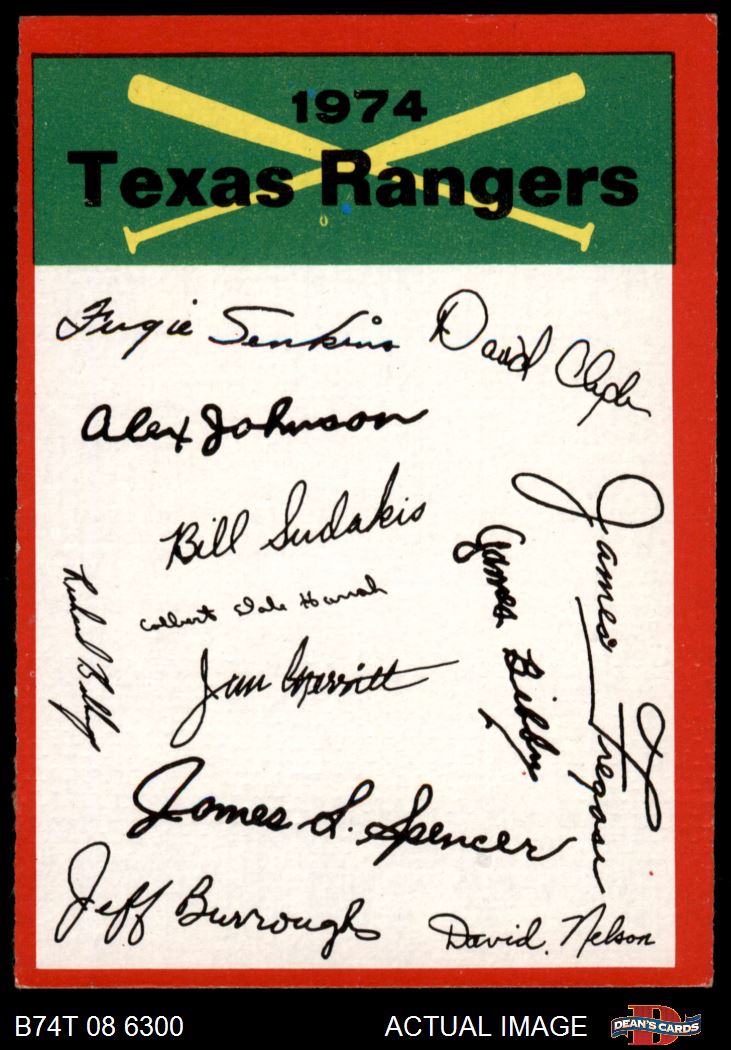 1974
Texas Rangers
Fergie Jenkins
David Clyde
Alex Johnson
Bill Sudakis
James Fregosi
James Bibby
Richard Billings
Colbert Dale Hamrah
Jim Merritt
James L. Spencer
Jeff Burroughs
David. Nelson
B74T 08 6300
ACTUAL IMAGE
D
DEAN'S CARDS